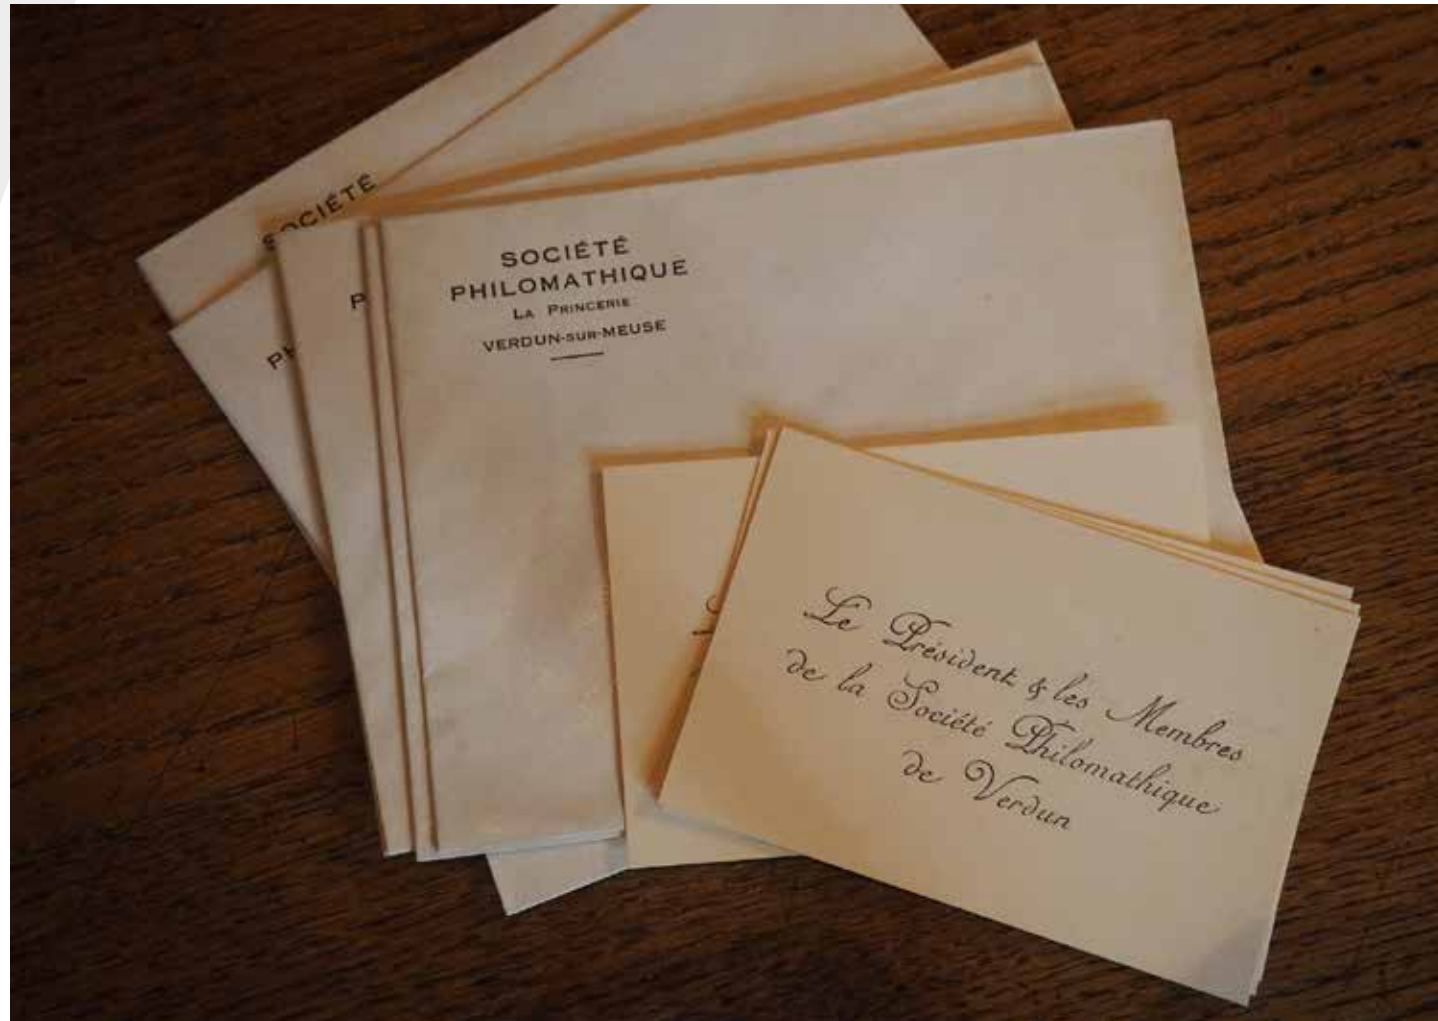 SOCIÉTÉ
SOCIÉTÉ
PHILOMATHIQUE
LA PRINCERIE
VERDUN-SUR-MEUSE
Le Président & les Membres
de la Société Philomathique
de Verdun